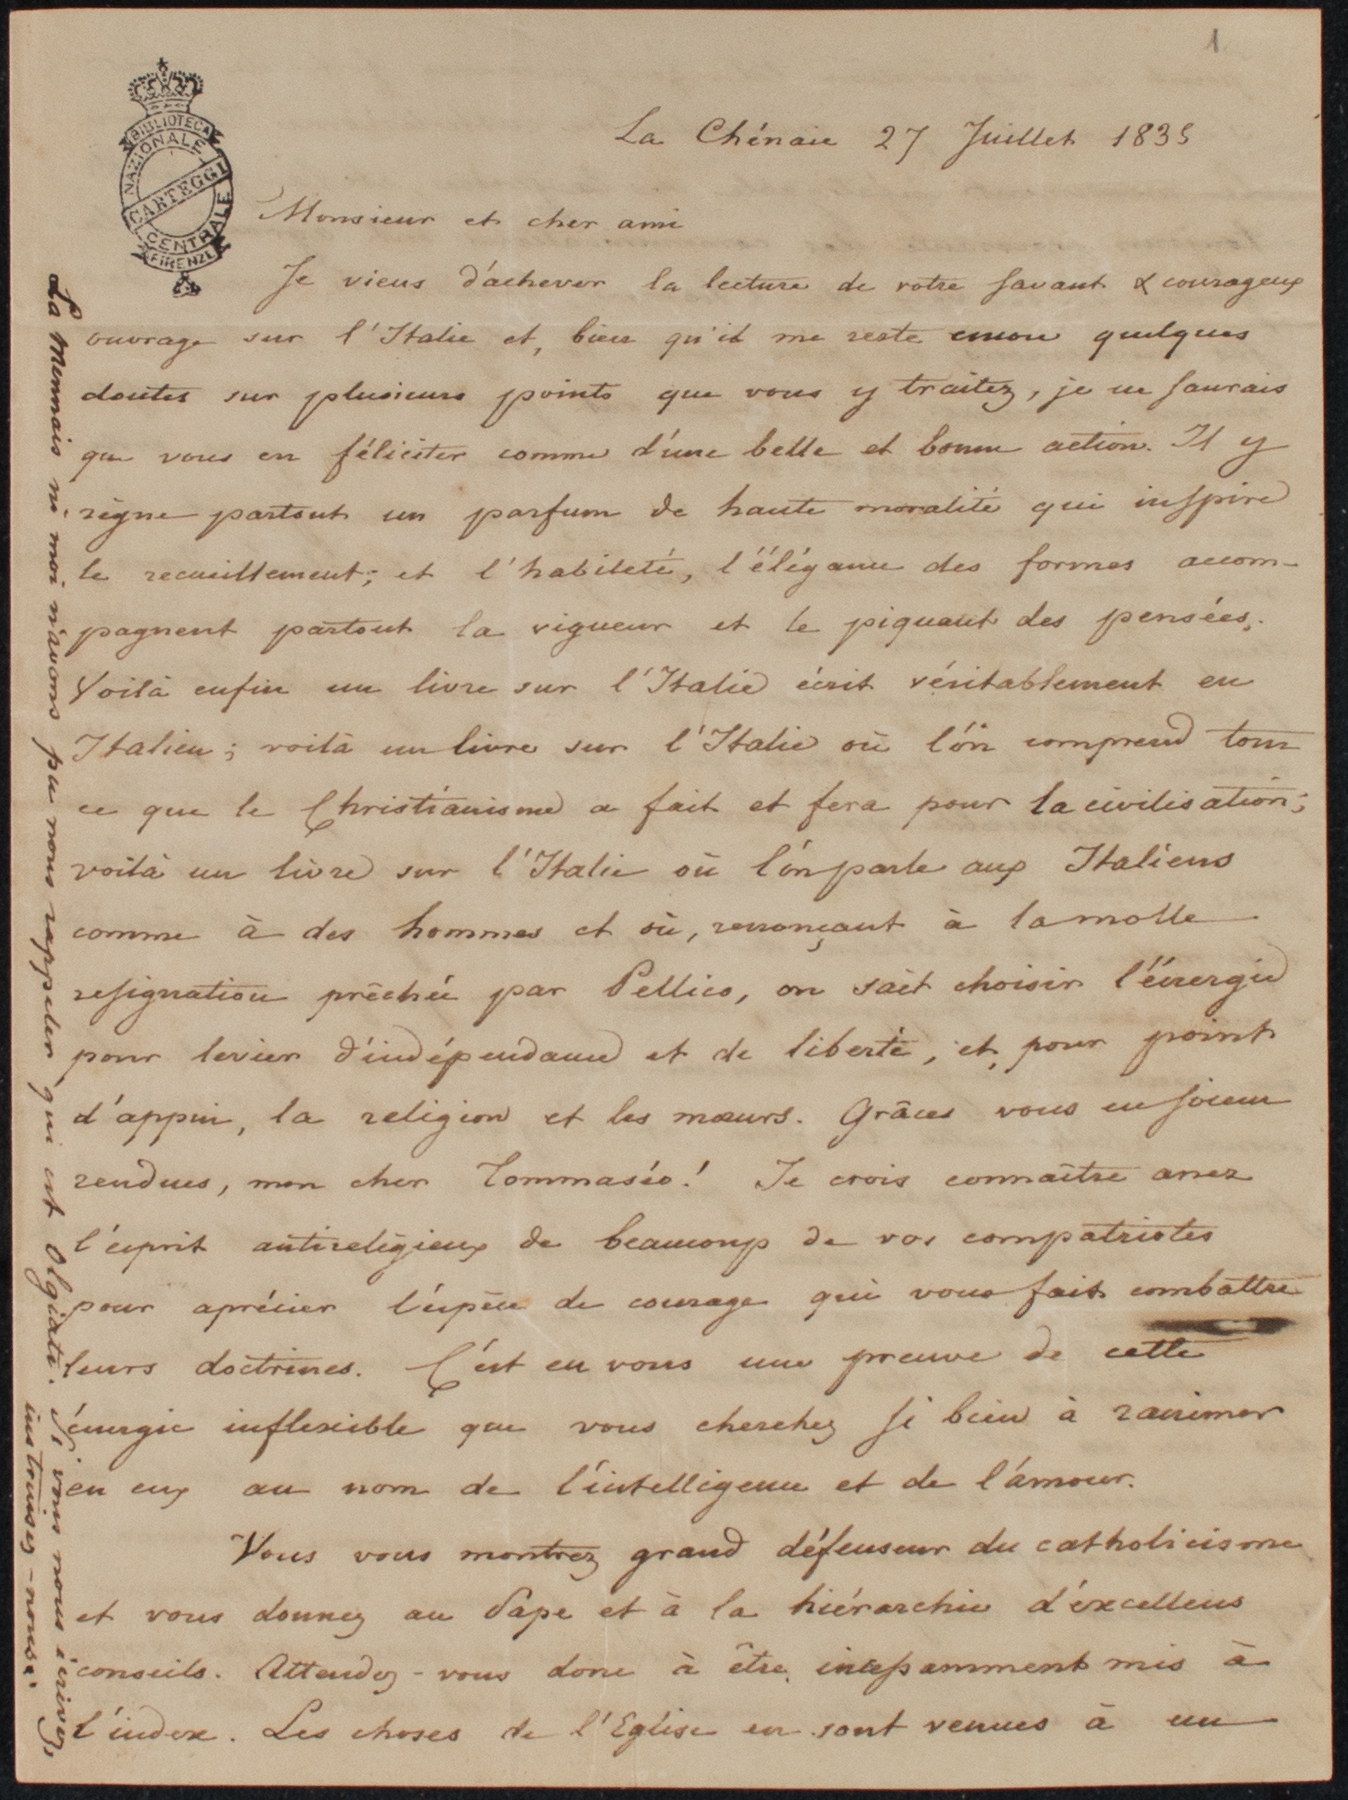 1
BIBLIOTECA
NAZIONALE
CARTEGGI
CENTRALE
FIRENZE
La Chénaie 27 Juillet 1835
Monsieur et cher ami
Je viens d'achever la lecture de votre savant & courageux
ouvrage sur l'Italie et, bien qu'il me reste encore quelques
doutes sur plusieurs points que vous y traitez, je ne saurais
que vous en féliciter comme d'une belle et bonne action. Il y
règne partout un parfum de haute moralité qui inspire
le recueillement; et l'habileté, l'élégance des formes accom-
pagnent partout la vigueur et le piquant des pensées.
Voilà enfin un livre sur l'Italie écrit véritablement en
Italien; voilà un livre sur l'Italie où l'on comprend tout
ce que le Christianisme a fait et fera pour la civilisation;
voilà un livre sur l'Italie où l'on parle aux Italiens
comme à des hommes et où, renonçant à la molle
resignation prêchée par Pellico, on sait choisir l'énergie
pour levier d'indépendance et de liberté, et, pour point
d'appui, la religion et les mœurs. Grâces vous en soient
rendues, mon cher Tommaséo! Je crois connaître assez
l'esprit antireligieux de beaucoup de vos compatriotes
pour aprécier l'espèce de courage qui vous fait combattre
leurs doctrines. C'est en vous une preuve de cette
énergie inflexible que vous cherchez si bien à ranimer
en eux au nom de l'intelligence et de l'amour.
Vous vous montrez grand défenseur du catholicisme
et vous donnez au Pape et à la hiérarchie d'excellens
conseils. Attendez-vous donc à être incessamment mis à
l'index. Les choses de l'Eglise en sont venues à un
La Mennais ni moi n'avons pu nous rappeler qui est Olgiati. Si vous nous écrivez,
instruisez-nous.